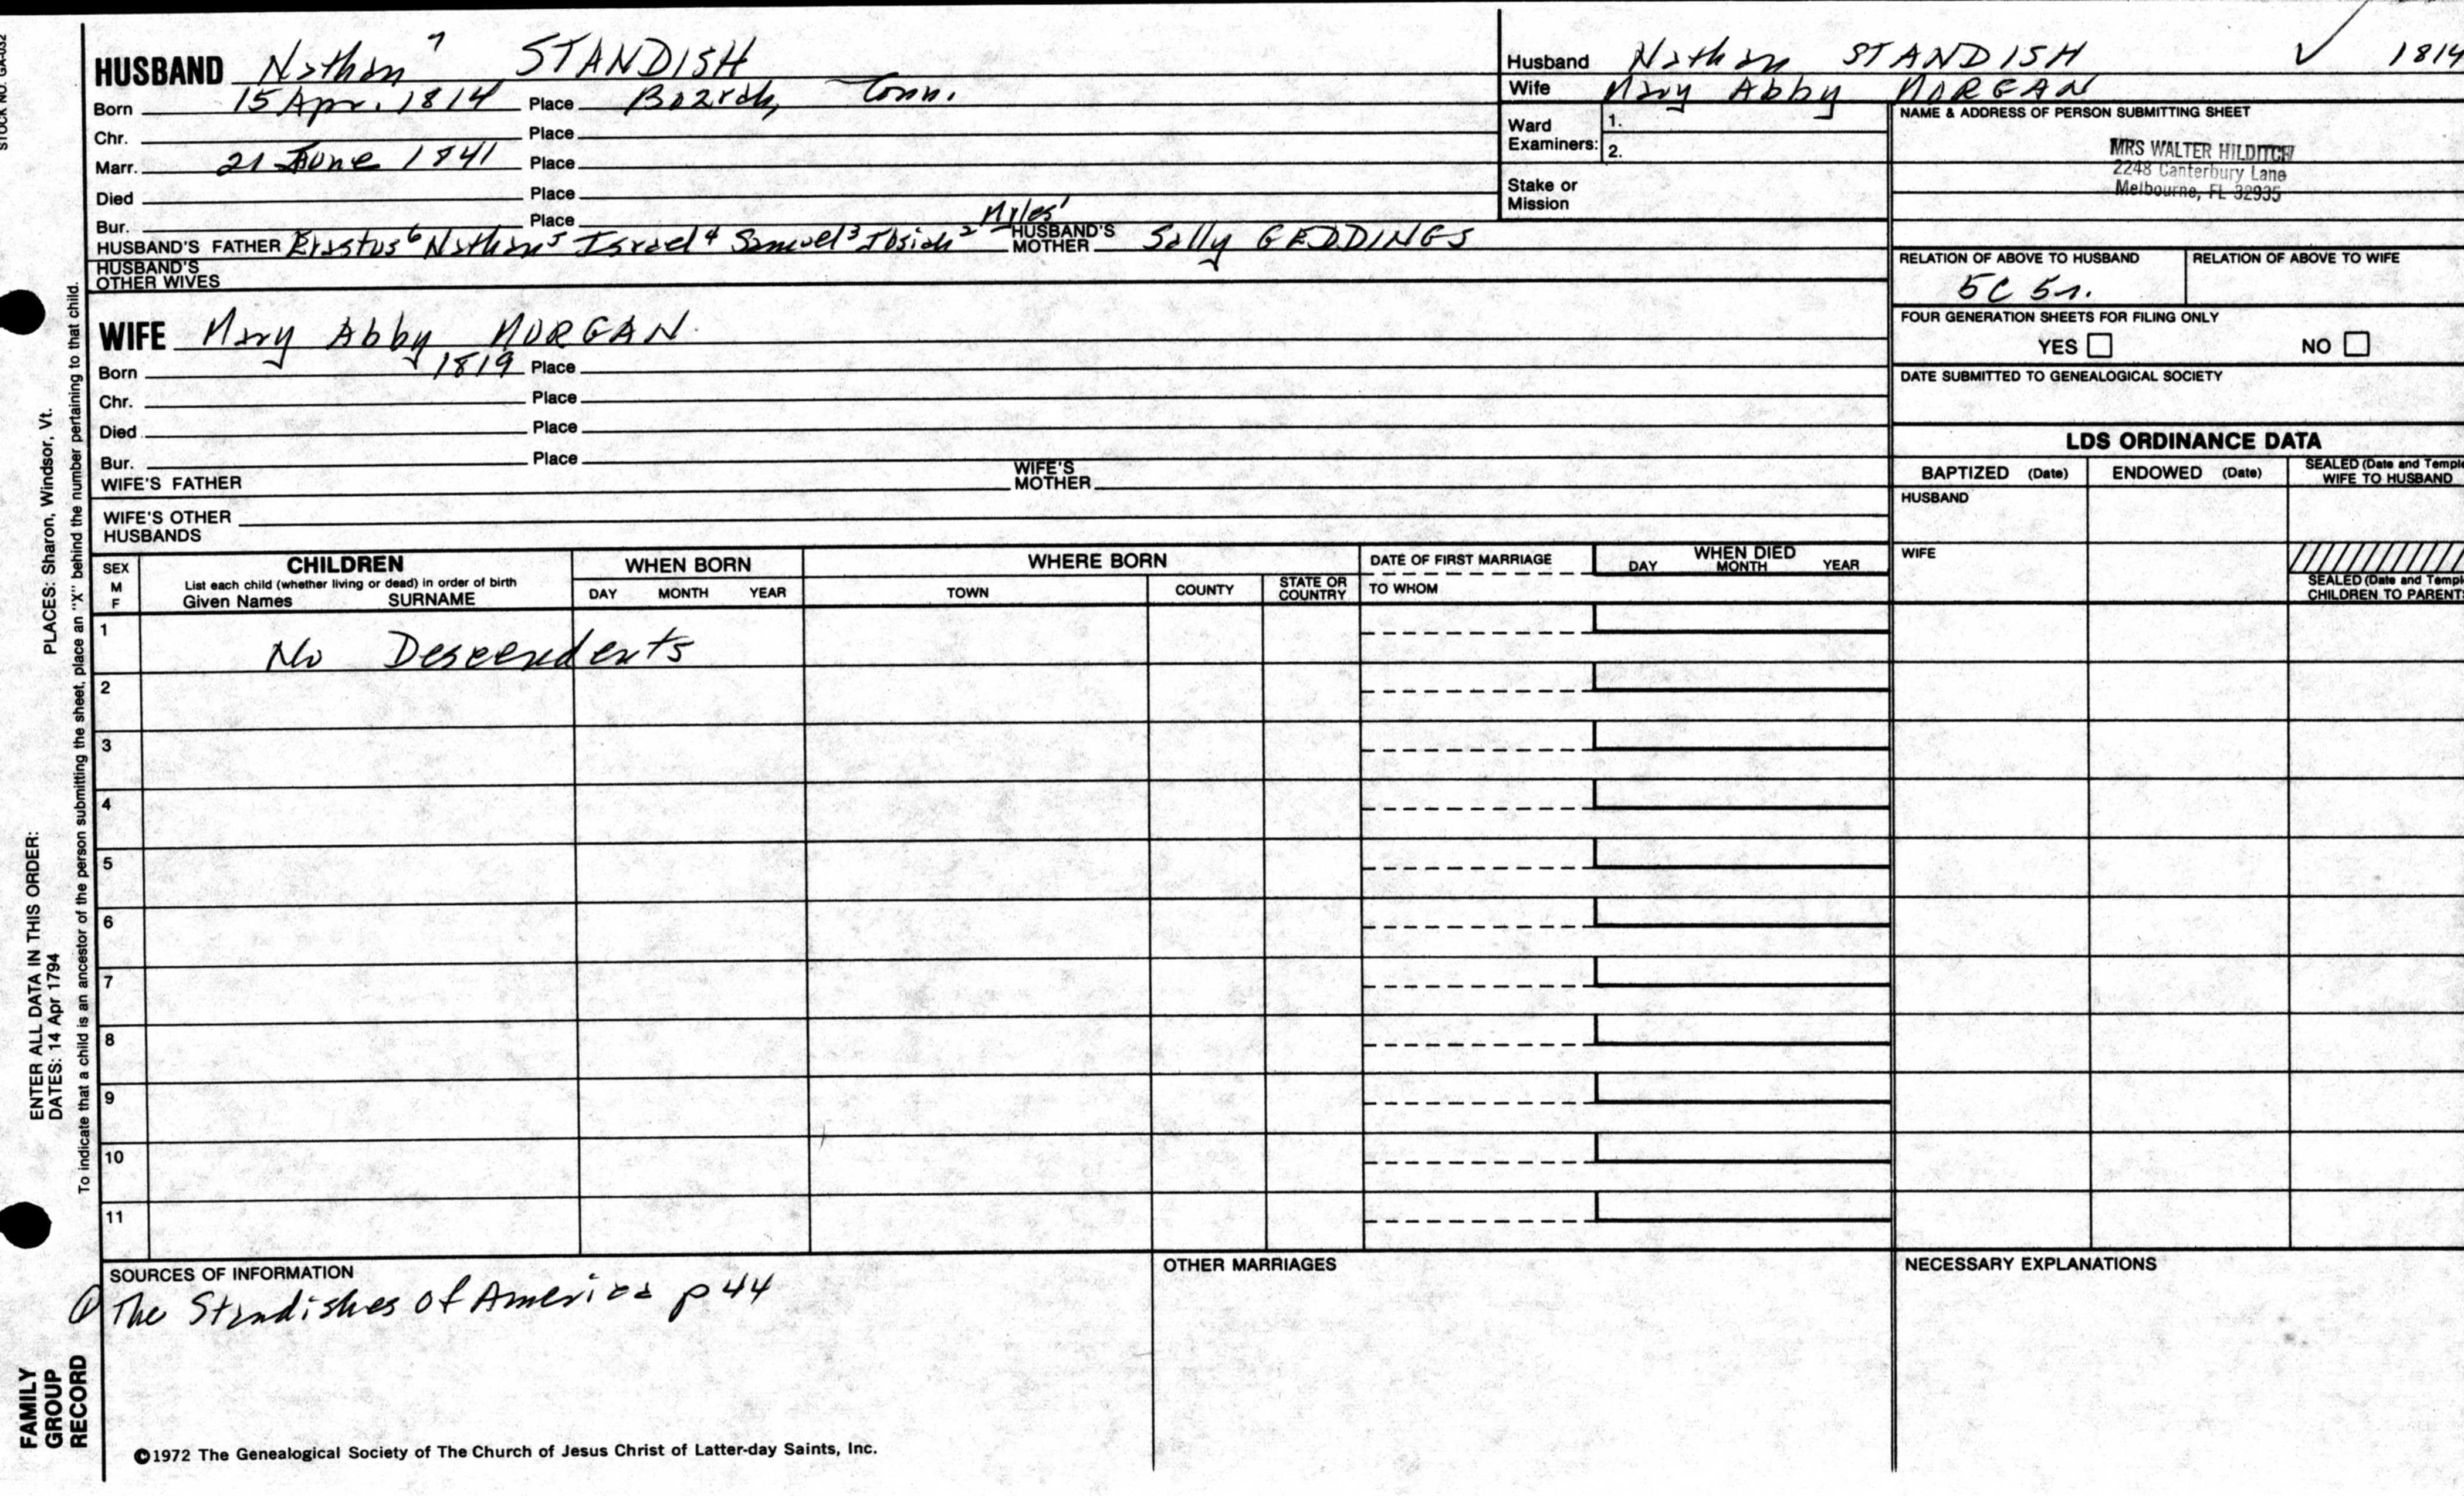 STOCK NO. GA-032
HUSBAND Nathan 7 STANDISH
Born 15 Apr. 1814 Place Bozrah, Conn.
Chr. Place
Marr. 21 June 1841 Place
Died Place
Bur. Place
HUSBAND'S FATHER Erastus 6 Nathan 5 Israel 4 Samuel 3 Josiah 2 Myles 1 HUSBAND'S MOTHER Sally GEDDINGS
HUSBAND'S OTHER WIVES
WIFE Mary Abby MORGAN
Born 1819 Place
Chr. Place
Died Place
Bur. Place
WIFE'S FATHER WIFE'S MOTHER
WIFE'S OTHER HUSBANDS
Husband Nathan STANDISH ✓ 1814
Wife Mary Abby MORGAN
Ward Examiners: 1.
2.
Stake or Mission
NAME & ADDRESS OF PERSON SUBMITTING SHEET
MRS WALTER HILDITCH
2248 Canterbury Lane
Melbourne, FL 32935
RELATION OF ABOVE TO HUSBAND RELATION OF ABOVE TO WIFE
5C 5r.
FOUR GENERATION SHEETS FOR FILING ONLY
YES NO
DATE SUBMITTED TO GENEALOGICAL SOCIETY
LDS ORDINANCE DATA
BAPTIZED (Date) ENDOWED (Date) SEALED (Date and Temple
WIFE TO HUSBAND
HUSBAND
WIFE
SEALED (Date and Templ
CHILDREN TO PARENT
SEX
M
F
CHILDREN
List each child (whether living or dead) in order of birth
Given Names SURNAME
WHEN BORN
DAY MONTH YEAR
WHERE BORN
TOWN COUNTY STATE OR COUNTRY
DATE OF FIRST MARRIAGE
TO WHOM
WHEN DIED
DAY MONTH YEAR
1 No Descendents
2
3
4
5
6
7
8
9
10
11
SOURCES OF INFORMATION
① The Standishes of America p 44
OTHER MARRIAGES
NECESSARY EXPLANATIONS
©1972 The Genealogical Society of The Church of Jesus Christ of Latter-day Saints, Inc.
FAMILY
GROUP
RECORD
ENTER ALL DATA IN THIS ORDER:
DATES: 14 Apr 1794
PLACES: Sharon, Windsor, Vt.
To indicate that a child is an ancestor of the person submitting the sheet, place an "X" behind the number pertaining to that child.